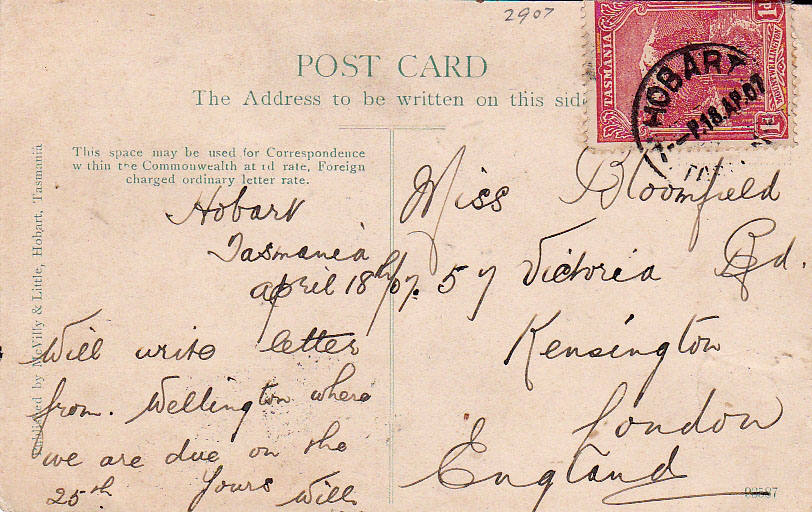 2907
POST CARD
The Address to be written on this side
TASMANIA
1d
HOBART
7- P.18.AP.07
This space may be used for Correspondence
within the Commonwealth at 1d rate, Foreign
charged ordinary letter rate.
Published by McVilly & Little, Hobart, Tasmania
Hobart
Tasmania
April 18th/07.
Will write letter
from. Wellington where
we are due on the
25th Yours Will
Miss Bloomfield
57 Victoria Rd.
Kensington
London
England